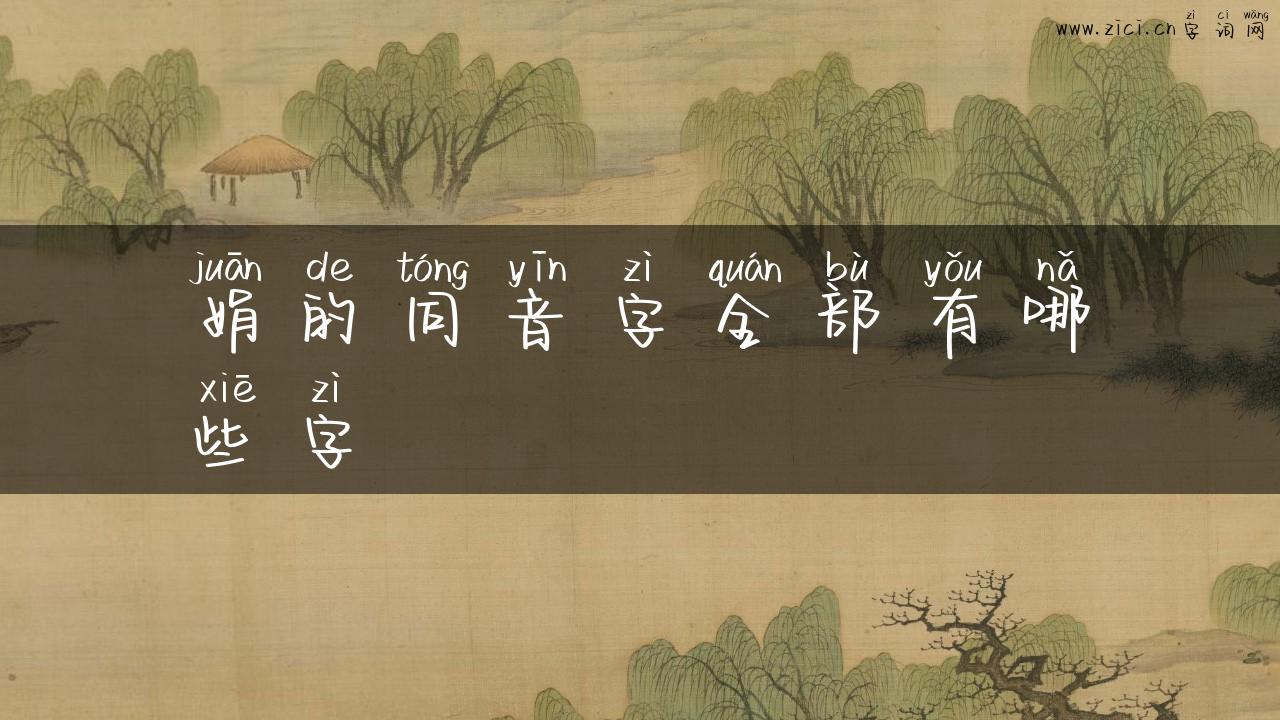 zì cí wǎng
www.zici.cn字词网
juān de tóng yīn zì quán bù yǒu nǎ
娟的同音字全部有哪
xiē zì
些字